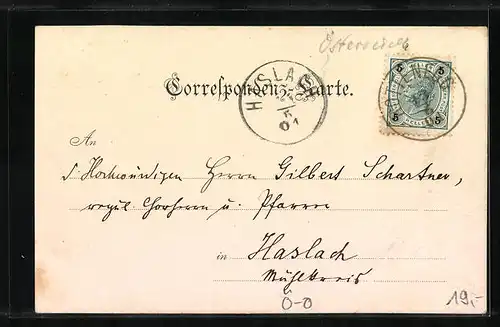 Österreich
Correspondenz-Karte.
HASLACH
5
01
5 5
5 5
An
S. Hochwürdigen Herrn Gilbert Schartner,
regul. Chorherrn u. Pfarrer
in Haslach
Mühlkreis
Ö-O
19,-